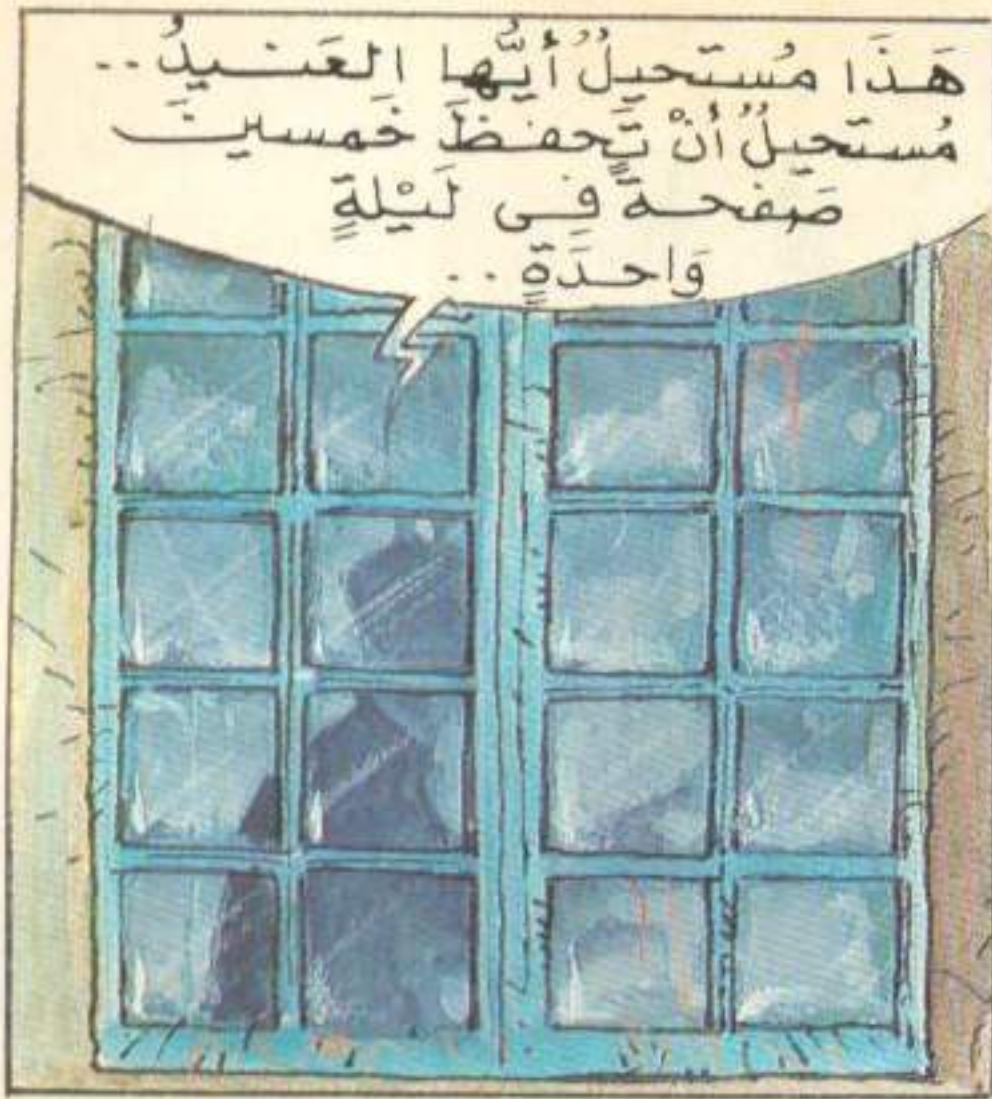 هَذَا مُسْتَحِيلٌ أَيُّها العَنيدُ..
مُستَحِيلٌ أنْ تَحفظَ خَمسينَ
صَفحةً في لَيْلةٍ
وَاحدَةٍ..